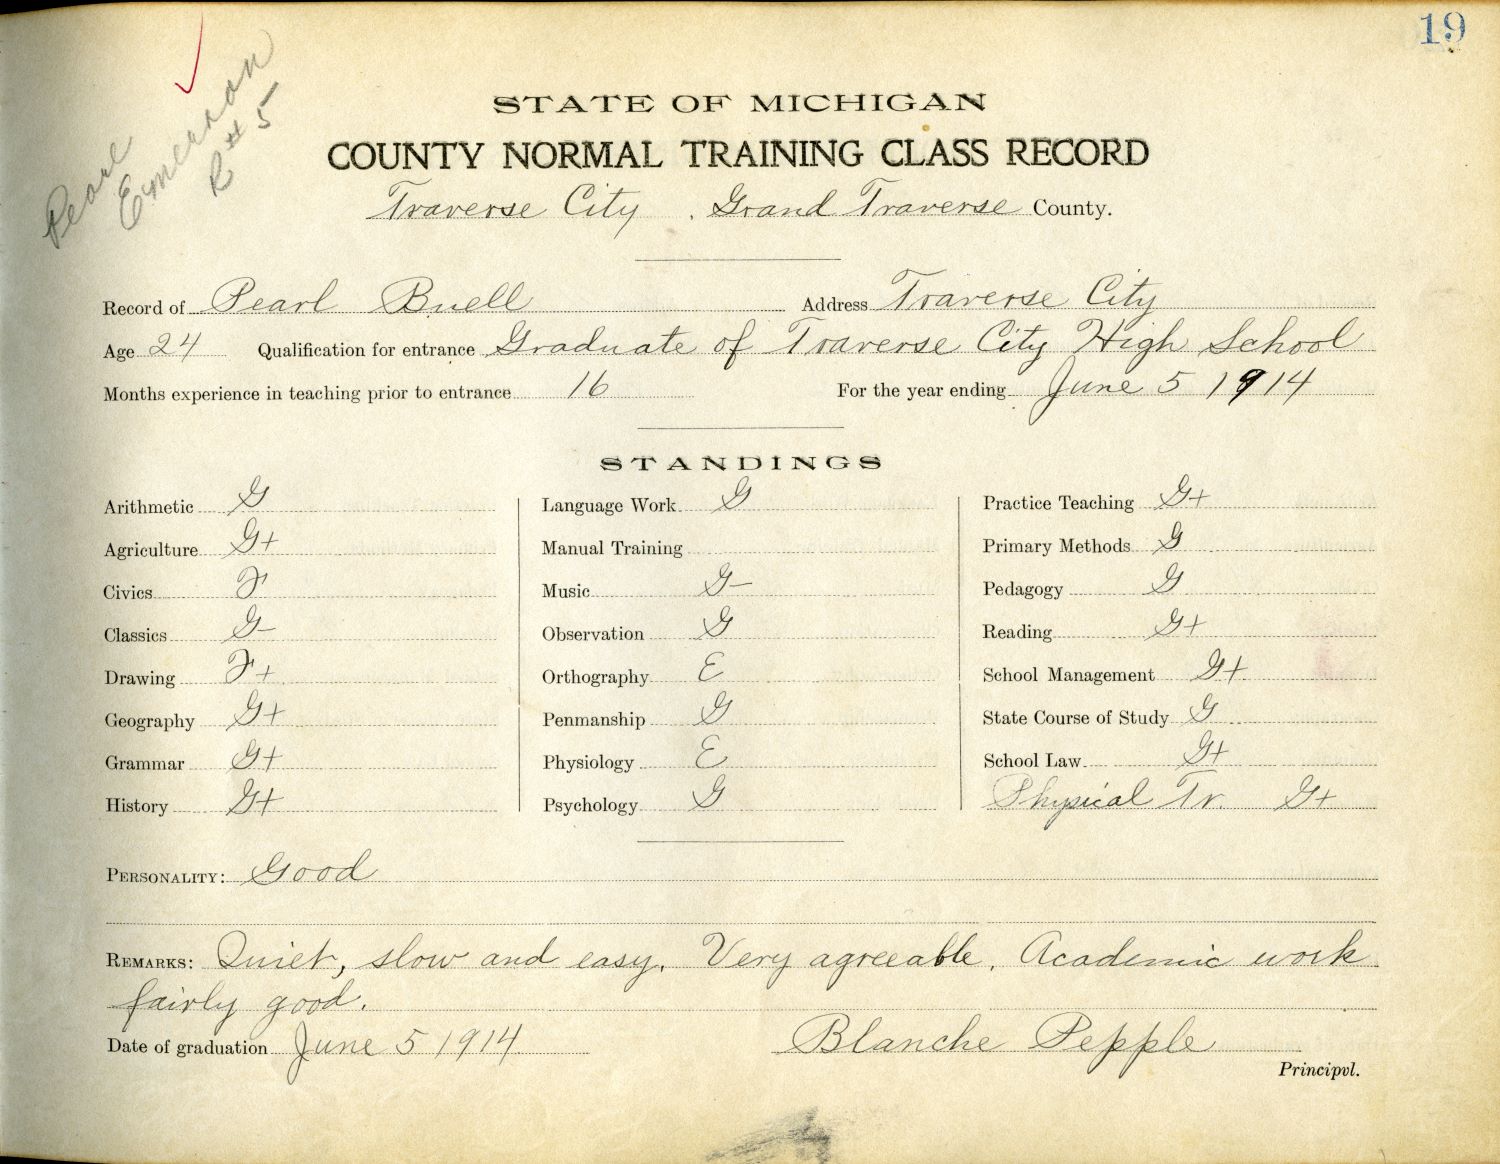 19
Pearl
Emerson
R#5
STATE OF MICHIGAN
COUNTY NORMAL TRAINING CLASS RECORD
Traverse City, Grand Traverse County.
Record of Pearl Buell Address Traverse City
Age 24 Qualification for entrance Graduate of Traverse City High School
Months experience in teaching prior to entrance 16 For the year ending June 5 1914
STANDINGS
Arithmetic G
Agriculture G+
Civics F
Classics G-
Drawing F+
Geography G+
Grammar G+
History G+
Language Work G
Manual Training
Music G-
Observation G
Orthography E
Penmanship G
Physiology E
Psychology G
Practice Teaching G+
Primary Methods G
Pedagogy G
Reading G+
School Management G+
State Course of Study G
School Law G+
Physical Tr. G+
PERSONALITY: Good
REMARKS: Quiet, slow and easy. Very agreeable. Academic work
fairly good.
Date of graduation June 5 1914 Blanche Pepple
Principal.